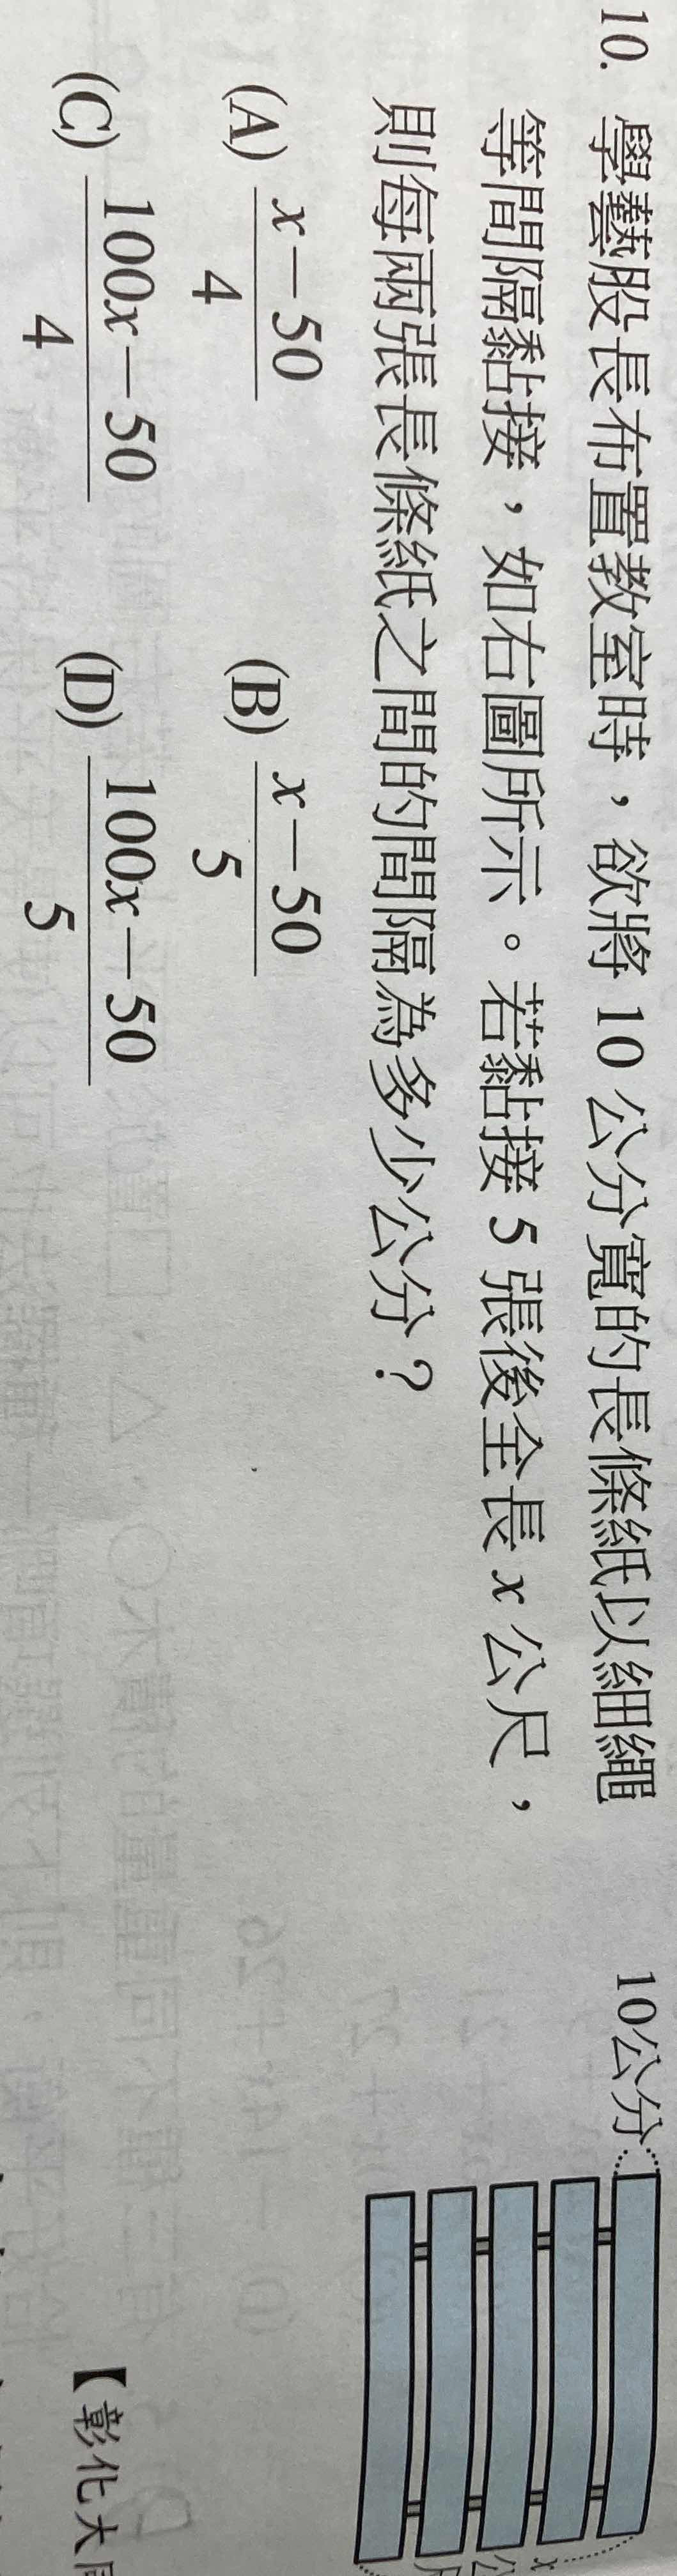 10. 學藝股長布置教室時，欲將 10 公分寬的長條紙以細繩
等間隔黏接，如右圖所示。若黏接 5 張後全長 x 公尺，
則每兩張長條紙之間的間隔為多少公分？
(A) x－50/4 (B) x－50/5
(C) 100x－50/4 (D) 100x－50/5
10公分
x公尺
【彰化大